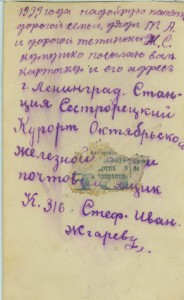 1939 года на добрую память
дорогой семьи, дяди М. А.
и дорогой тетиньки Ж. С.
посылаю вам
карточку и его адрес
г. Ленинград. Стан-
ция Сестрорецкий
Курорт Октябрьской
железной
почтовый ящик
К. 316. Стеф. Иван.
Жгареву